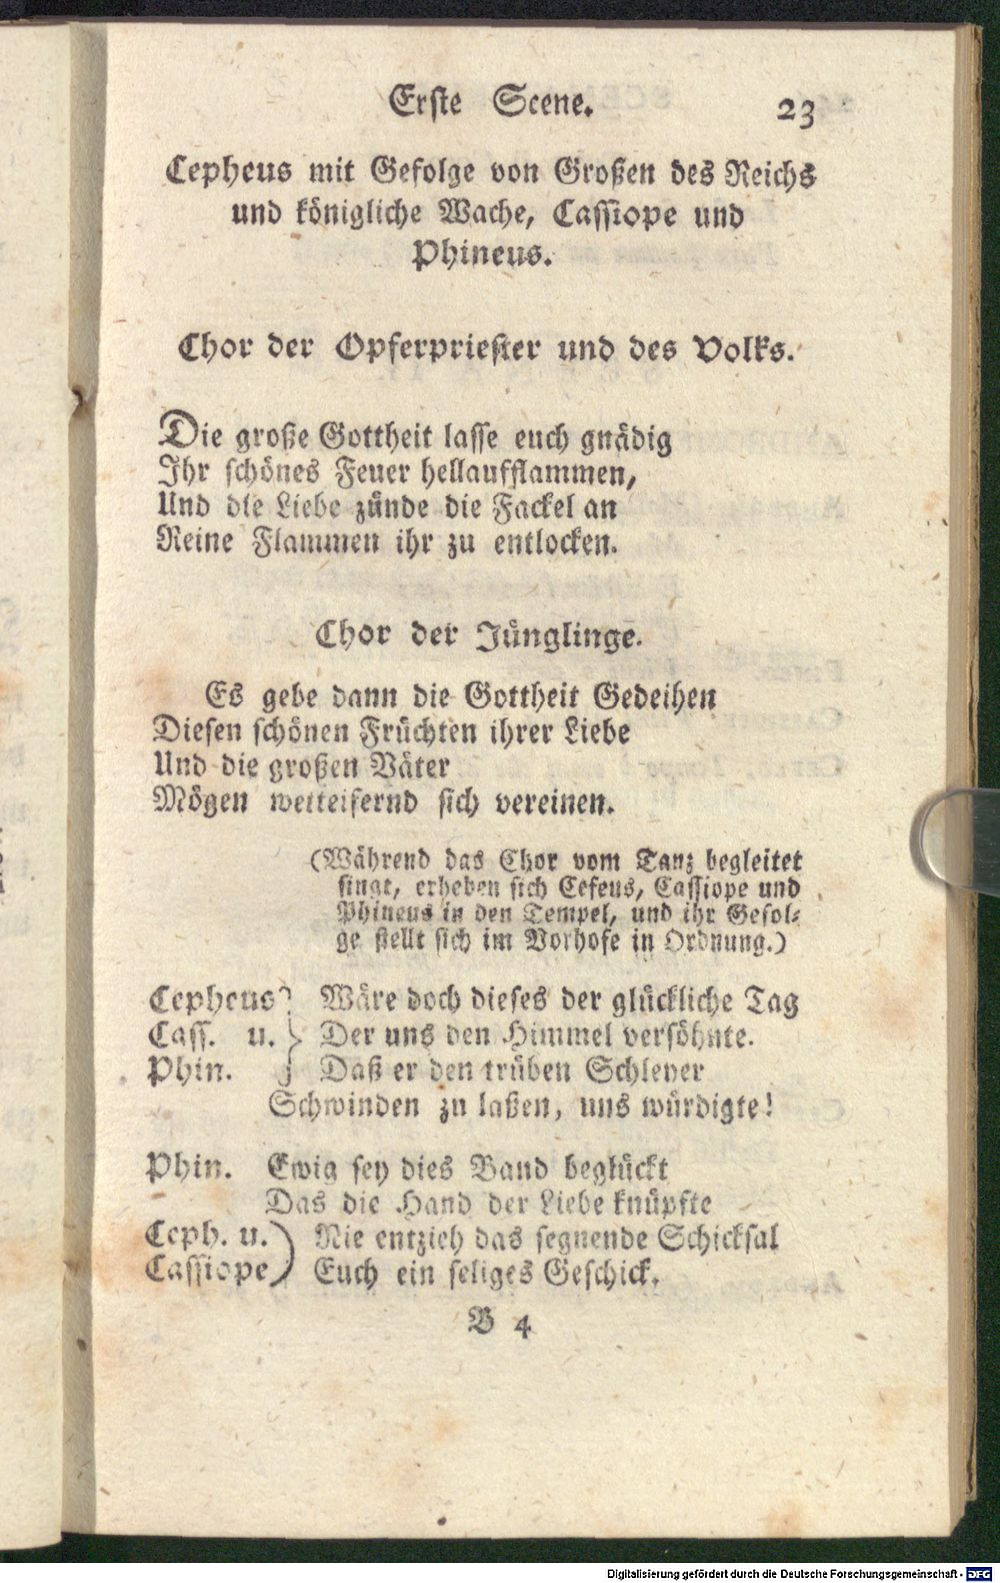 Erste Scene. 23
Cepheus mit Gefolge von Großen des Reichs
und königliche Wache, Cassiope und
Phineus.
Chor der Opferpriester und des Volks.
Die große Gottheit lasse euch gnädig
Ihr schönes Feuer hellaufflammen,
Und die Liebe zünde die Fackel an
Reine Flammen ihr zu entlocken.
Chor der Jünglinge.
Es gebe dann die Gottheit Gedeihen
Diesen schönen Früchten ihrer Liebe
Und die großen Väter
Mögen wetteifernd sich vereinen.
(Während das Chor vom Tanz begleitet
singt, erheben sich Cefeus, Cassiope und
Phineus in den Tempel, und ihr Gefol-
ge stellt sich im Vorhofe in Ordnung.)
Cepheus } Wäre doch dieses der glückliche Tag
Cass. u. } Der uns den Himmel versöhnte.
Phin. } Daß er den trüben Schleyer
Schwinden zu laßen, uns würdigte!
Phin. Ewig sey dies Band beglückt
Das die Hand der Liebe knüpfte
Ceph. u. ) Nie entzieh das segnende Schicksal
Cassiope ) Euch ein seliges Geschick.
B 4
Digitalisierung gefördert durch die Deutsche Forschungsgemeinschaft - DFG